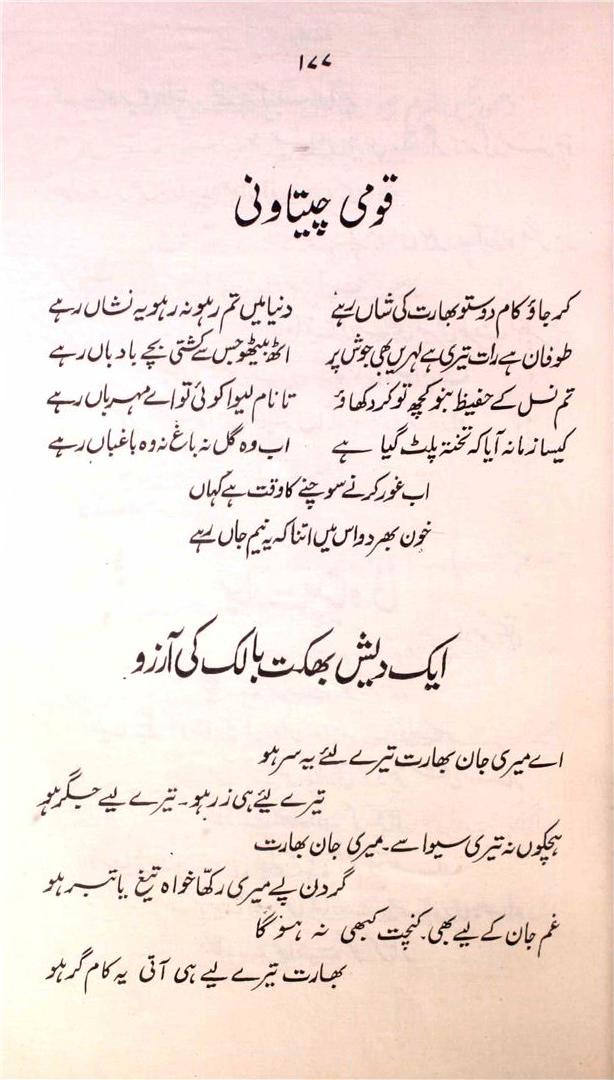 ۱۷۷
قومی چیتاونی
کر جاؤ کام دوستو بھارت کی شاں رہے دنیا میں تم رہو نہ رہو یہ نشاں رہے
طوفان ہے رات تیری ہے لہریں بھی جوش پر اٹھ بیٹھو جس سے کشتی بچے بادباں رہے
تم نسل کے حفیظ بنو کچھ تو کر دکھاؤ تا نام لیوا کوئی تو اے مہرباں رہے
کیسا زمانہ آیا کہ تختہ پلٹ گیا ہے اب وہ گل نہ باغ نہ وہ باغباں رہے
اب غور کرنے سوچنے کا وقت ہے کہاں
خون بھر دو اس میں اتنا کہ یہ نیم جاں رہے
ایک دیش بھکت بالک کی آرزو
اے میری جان بھارت تیرے لئے یہ سر ہو
تیرے لیئے ہی زر ہو۔ تیرے لیے جگر ہو
ہچکوں نہ تیری سیوا سے۔ میری جان بھارت
گردن پے میری رکھا خواہ تیغ یا تبر ہو
غم جان کے لیے بھی۔ کنچت کبھی نہ ہو گا
بھارت تیرے لیے ہی آتی یہ کام گر ہو